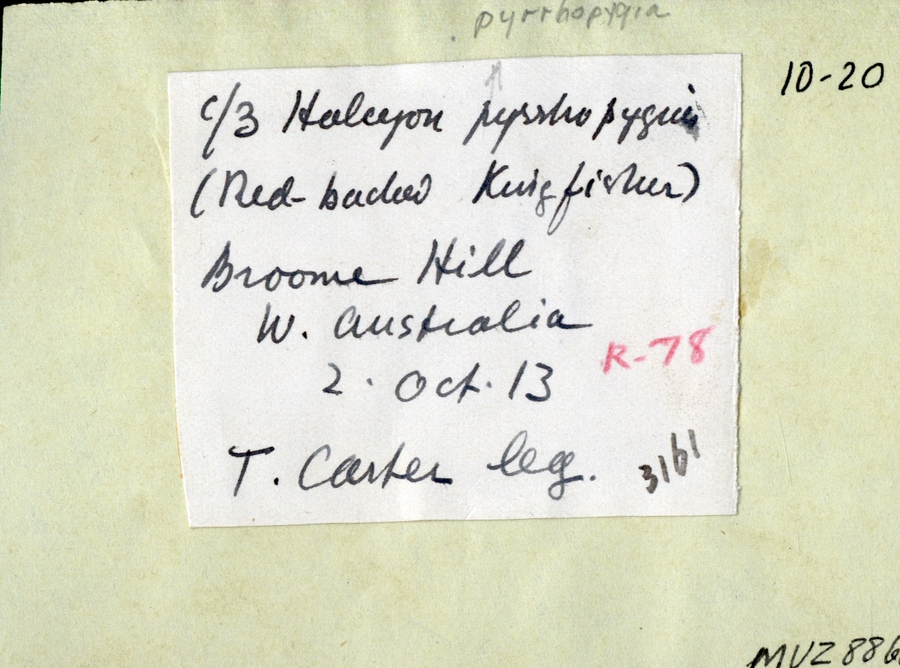 pyrrhopygia
10-20
c/3 Halcyon pyrrhopygia
(Red-backed Kingfisher)
Broome Hill
W. Australia
R-78
2. Oct. 13
T. Carter leg.
3161
MVZ 886